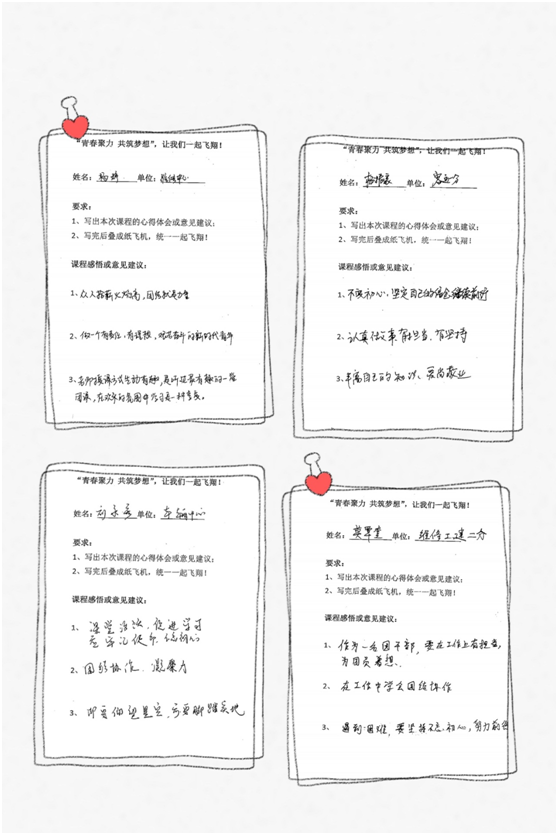 “青春聚力 共筑梦想”，让我们一起飞翔！
姓名： 单位：
要求：
1、写出本次课程的心得体会或意见建议；
2、写完后叠成纸飞机，统一一起飞翔！
课程感悟或意见建议：
1、众人拾柴火焰高，团结就是力量
2、做一个有责任、有理想、的新时代青年
3、老师授课方式生动有趣，是听过最有趣的一堂
团课，在欢乐的氛围中学习是一种享受。
“青春聚力 共筑梦想”，让我们一起飞翔！
姓名： 单位：
要求：
1、写出本次课程的心得体会或意见建议；
2、写完后叠成纸飞机，统一一起飞翔！
课程感悟或意见建议：
1、不忘初心，坚定自己的信念继续前行
2、认真做事、有担当、有坚持
3、丰富自己的知识、爱岗敬业
“青春聚力 共筑梦想”，让我们一起飞翔！
姓名： 单位： 车辆中心
要求：
1、写出本次课程的心得体会或意见建议；
2、写完后叠成纸飞机，统一一起飞翔！
课程感悟或意见建议：
1、课堂活泼、促进学习
牢记使命、
2、团结协作、凝聚力
3、即要仰望星空，亦要脚踏实地
“青春聚力 共筑梦想”，让我们一起飞翔！
姓名： 单位： 维修工建二分
要求：
1、写出本次课程的心得体会或意见建议；
2、写完后叠成纸飞机，统一一起飞翔！
课程感悟或意见建议：
1、作为一名团干部，要在工作上有担当，
为团员着想、
2、在工作中学会团结协作
3、遇到困难，要坚持不忘初心，努力前进